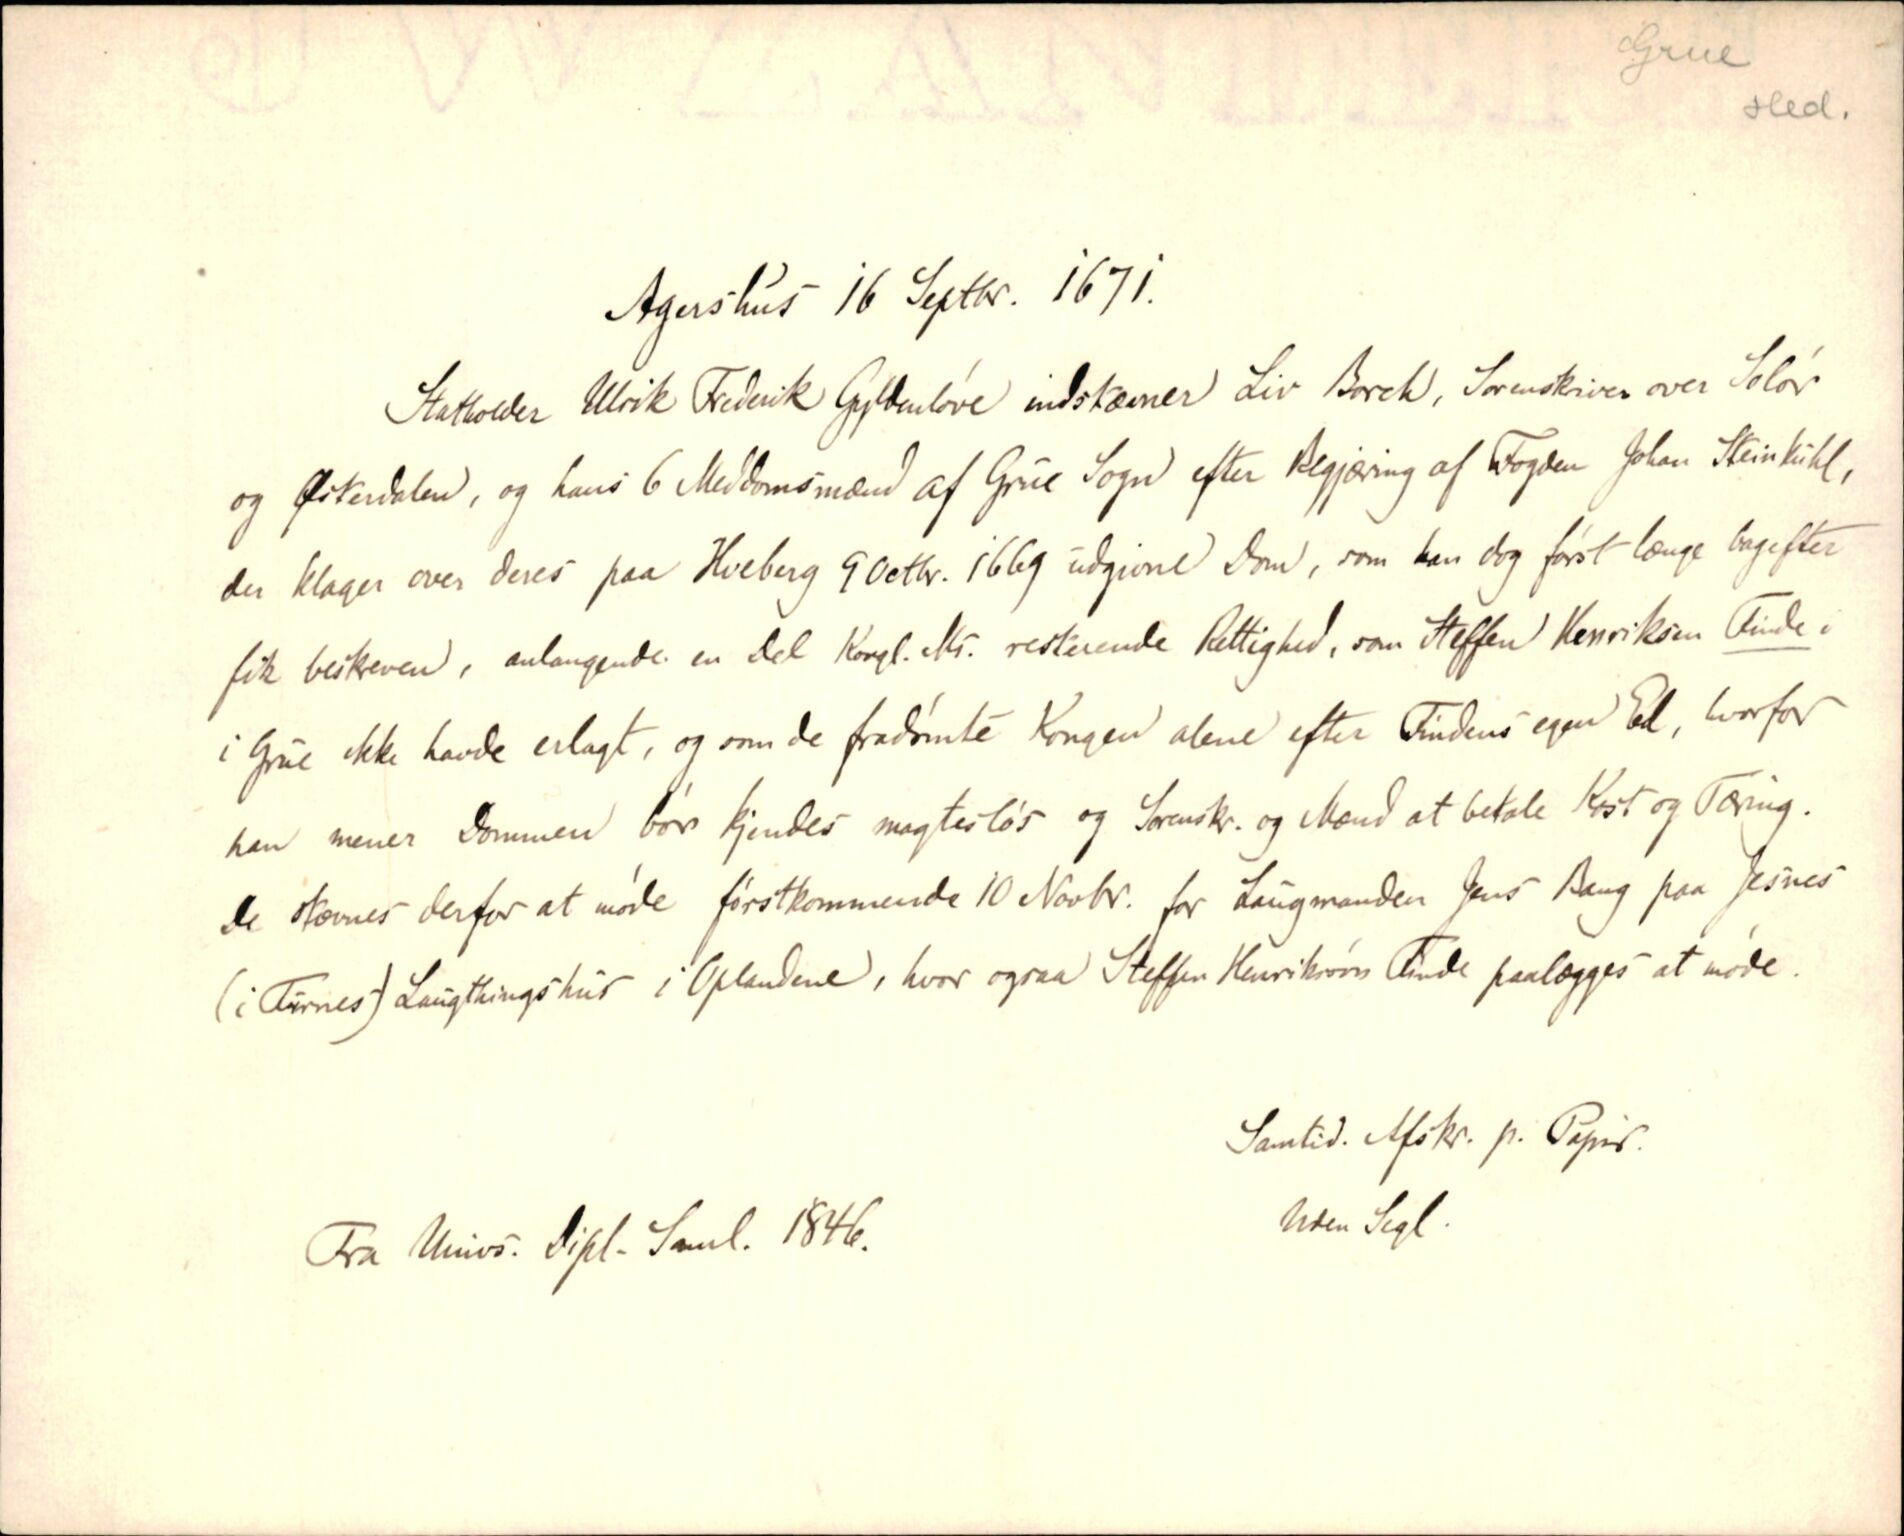 Grue
Hed.
Agershus 16 Septbr. 1671.
Statholder Ulrik Frederik Gyldenløve indstævner Liv Borch, Sorenskriver over Solør
og Østerdalen, og hans 6 Meddomsmænd af Grue Sogn efter Begjæring af Fogden Johan Steinkühl,
der klager over deres paa Hveberg 9 Octbr. 1669 udgivne Dom, som han dog først længe bagefter
fik beskreven, anlangende en Del Kongl. Ms. resterende Rettighed, som Steffen Henriksen Finde i
i Grue ikke havde erlagt, og som de fradømte Kongen alene efter Findens egen Ed, hvorfor
han mener Dommen bør kjendes magtesløs og Sorenskr. og Mænd at betale Kost og Tæring.
De stævnes derfor at møde førstkommende 10 Novbr. for Laugmanden Jens Bang paa Jesnes
(i Furnes) Laugthingshus i Oplandene, hvor ogsaa Steffen Henriksøn Finde paalægges at møde.
Samtid. Afskr. p. Papir.
Uden Segl.
Fra Univs. Dipl.-Saml. 1846.